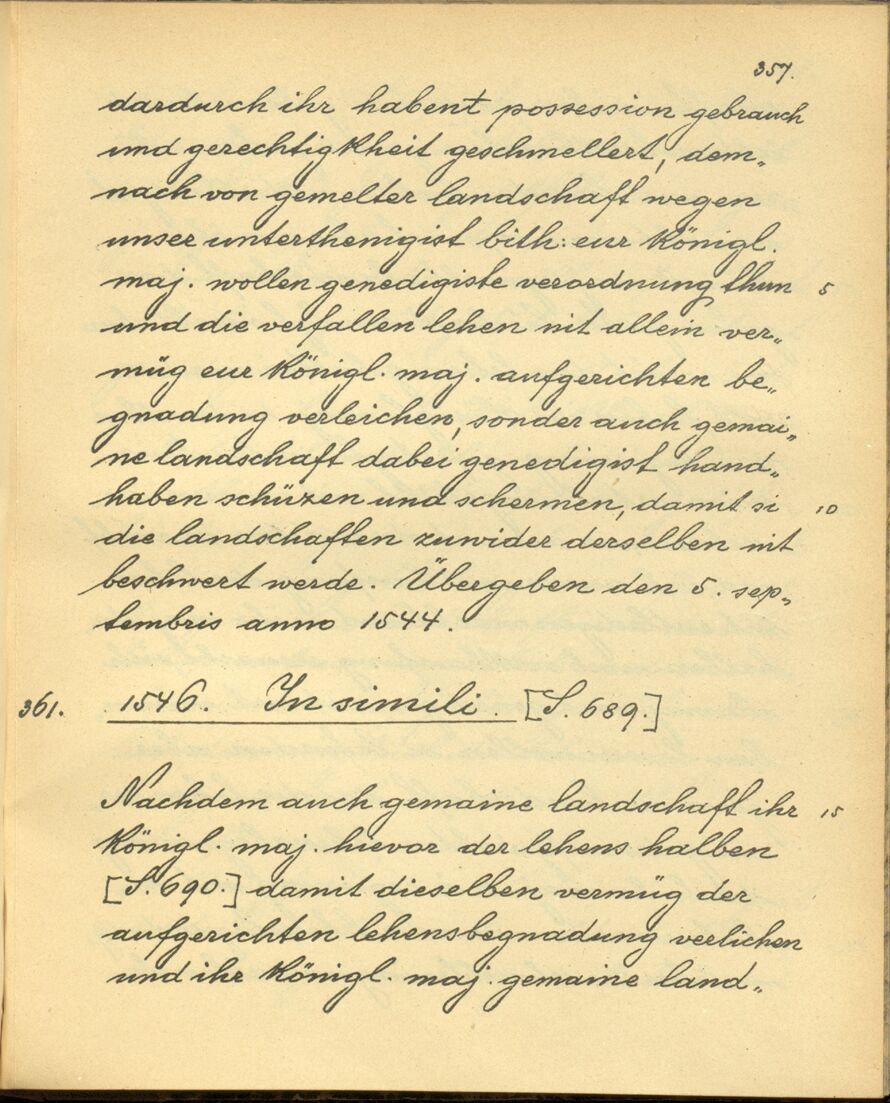 357.
dardurch ihr habent possession gebrauch
und gerechtigkheit geschmellert, dem„
nach von gemelter landschaft wegen
unser unterthenigist bith: eur königl.
maj. wollen genedigiste verordnung thun 5
und die verfallen lehen nit allein ver„
müg eur königl. maj. aufgerichten be„
gnadung verleichen, sonder auch gemai„
ne landschaft dabei genedigist hand„
haben schüzen und schermen, damit si 10
die landschaften zuwider derselben nit
beschwert werde. Übergeben den 5. sep„
tembris anno 1544.
361. 1546. In simili. [S. 689.]
Nachdem auch gemaine landschaft ihr 15
königl. maj. hievor der lehens halben
[S. 690.] damit dieselben vermüg der
aufgerichten lehensbegnadung verlichen
und ihr königl. maj. gemaine land„